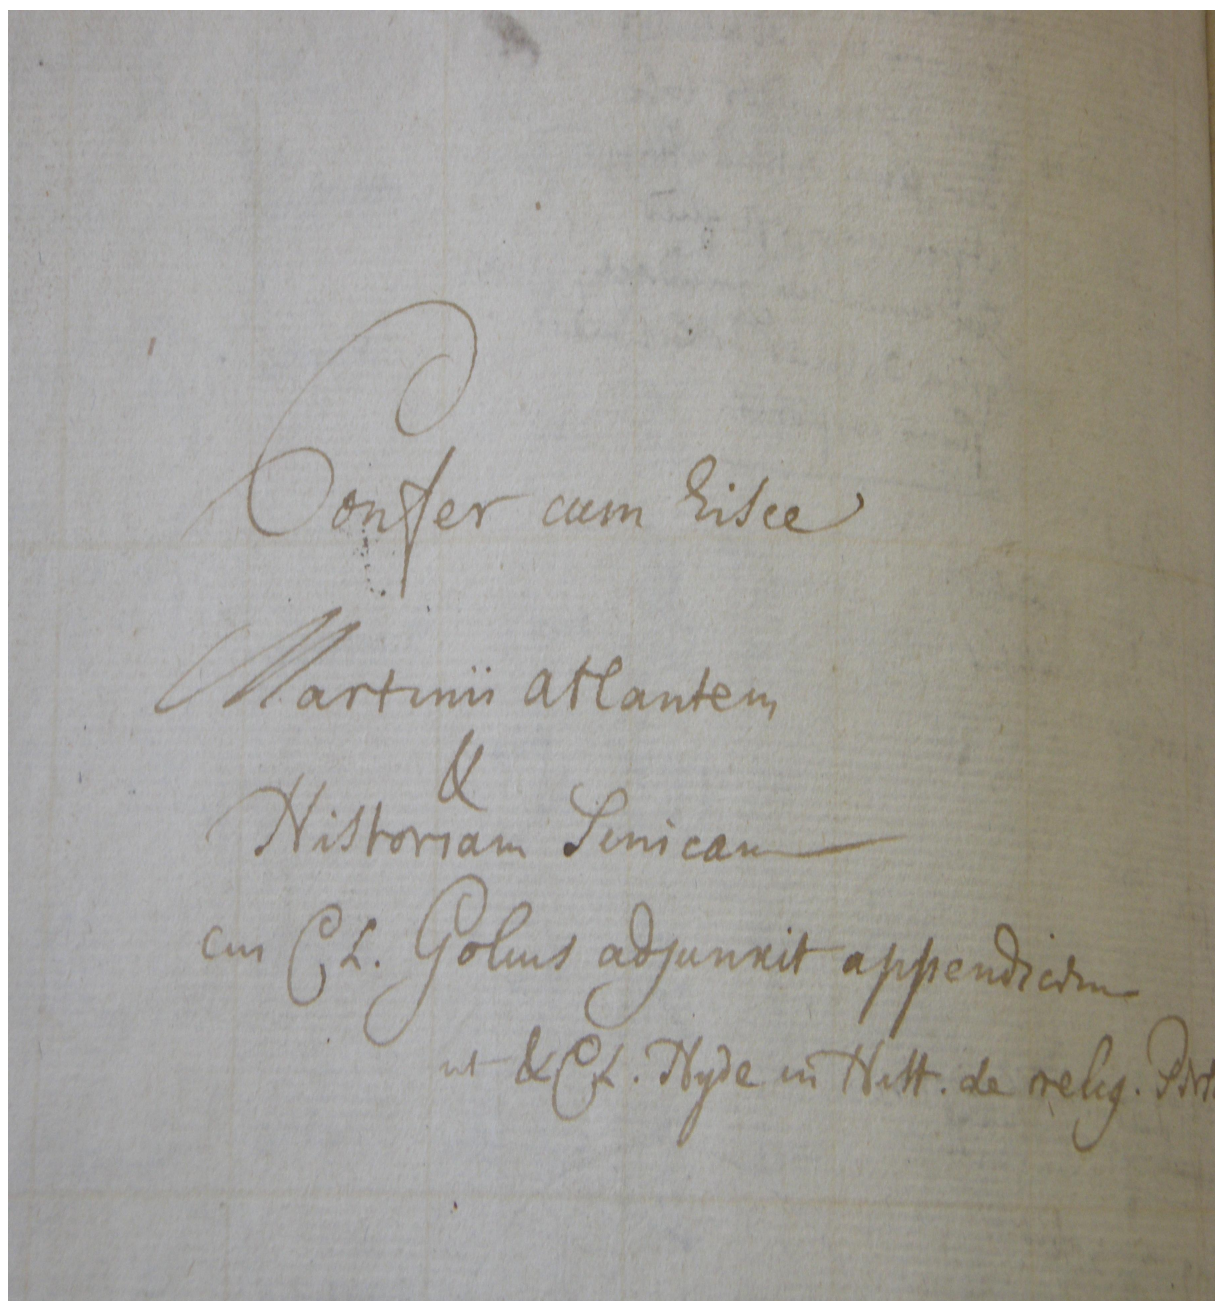 Confer cum hisce
Martinii atlantem
&
Historiam Sinicam
cui Cl. Golius adjunxit appendicem
ut & Cl. Hyde in Hist. de relig.